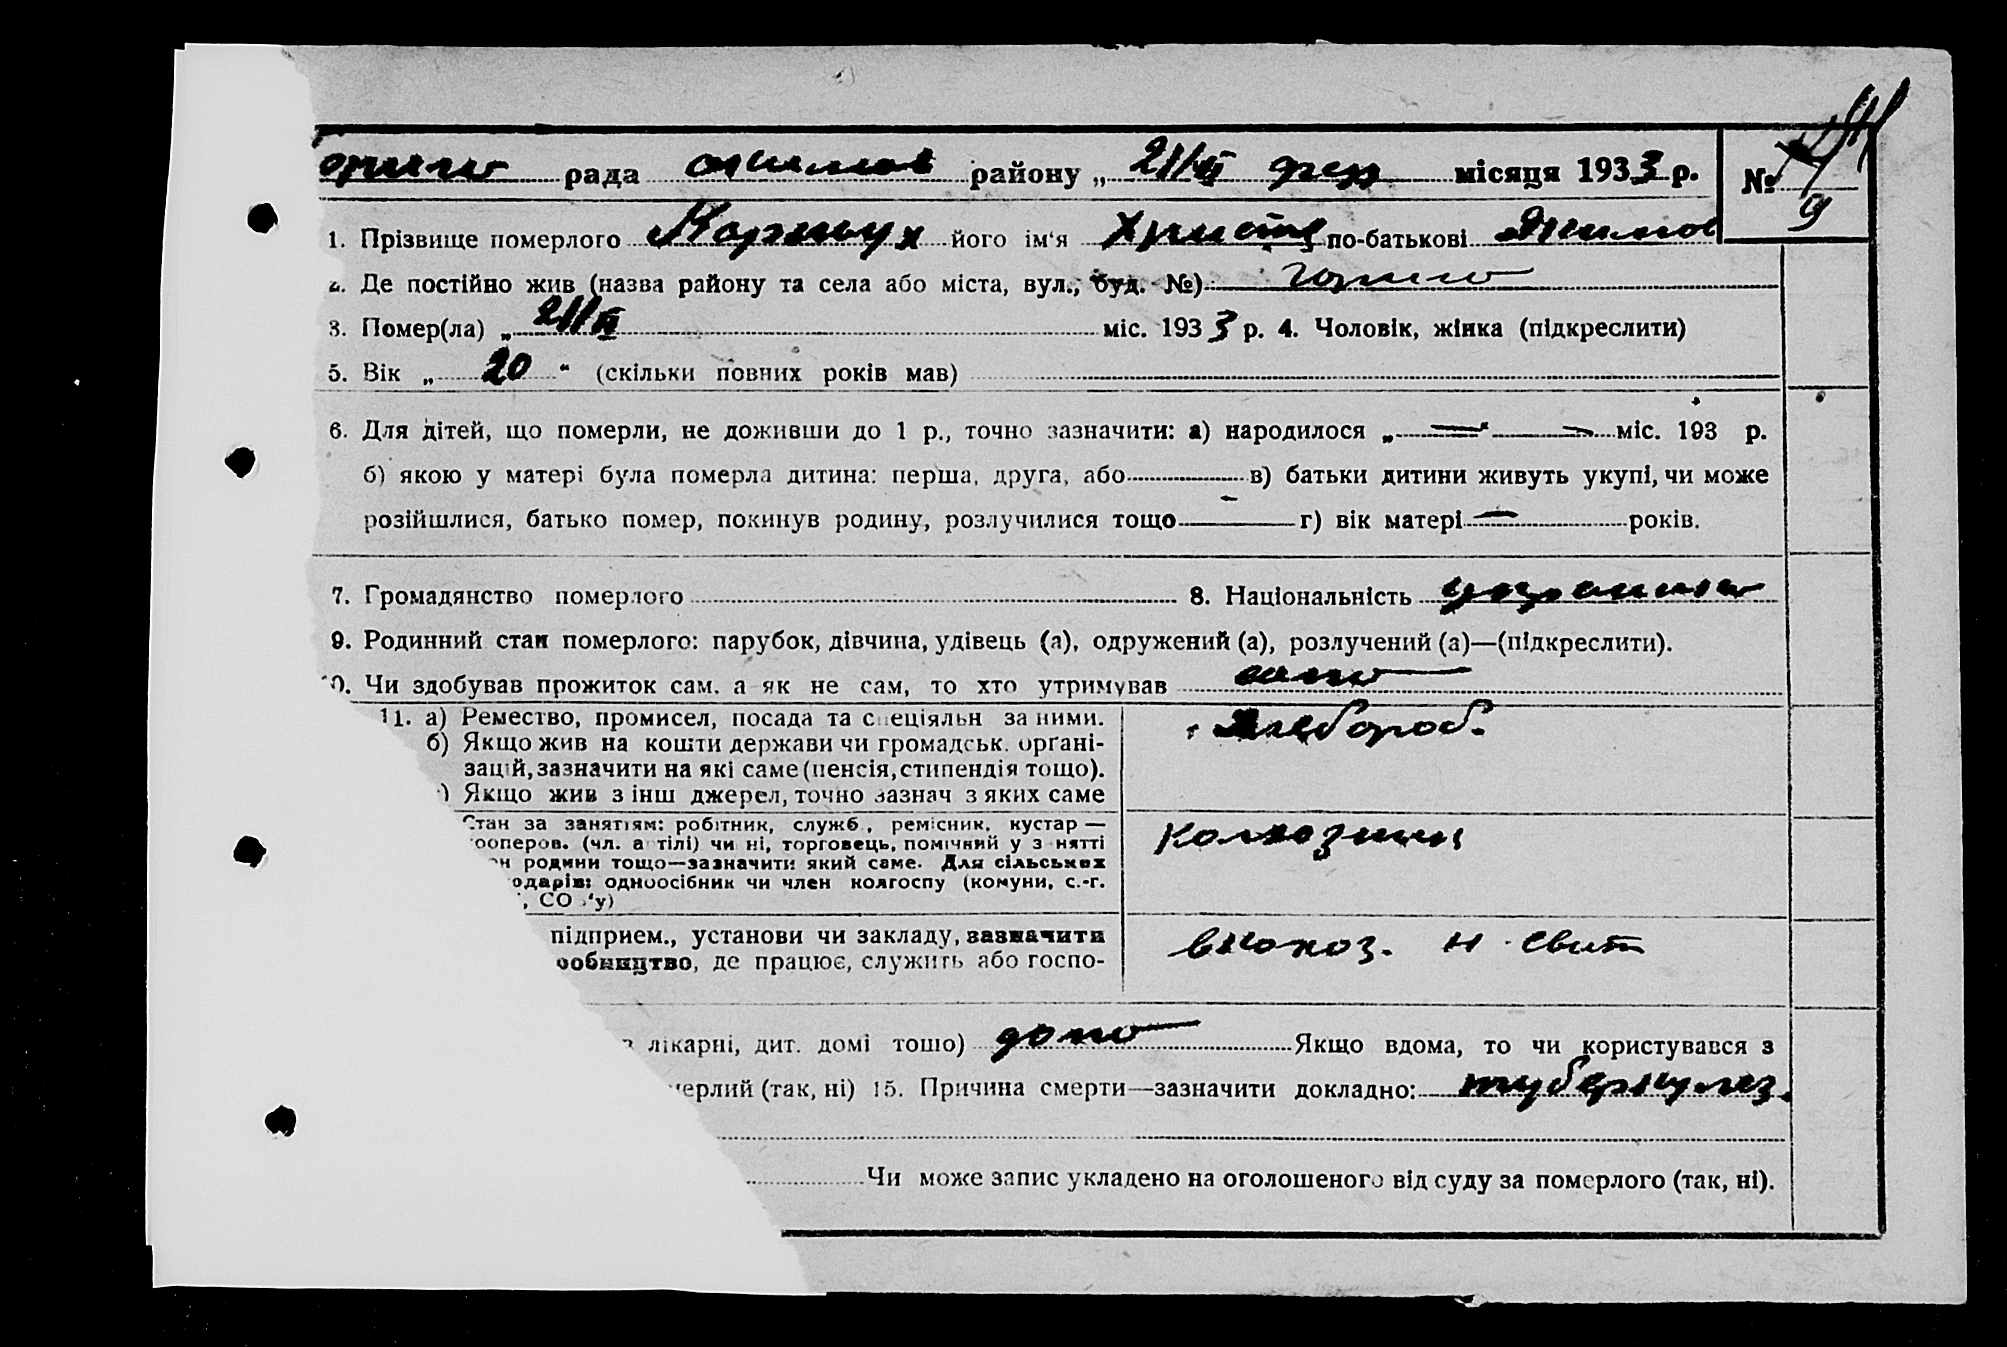 рада району „ 21/II місяця 1933 р. №
9
1. Прізвище померлого його ім‘я Христя по-батькові
2. Де постійно жив (назва району та села або міста, вул., буд. №)
3. Помер(ла) „ 21/II міс. 1933 р. 4. Чоловік, жінка (підкреслити)
5. Вік „ 20 “ (скільки повних років мав)
6. Для дітей, що померли, не доживши до 1 р., точно зазначити: а) народилося „ — “ — міс. 193 р.
б) якою у матері була померла дитина: перша, друга, або в) батьки дитини живуть укупі, чи може
розійшлися, батько помер, покинув родину, розлучилися тощо — г) вік матері — років.
7. Громадянство померлого 8. Національність
9. Родинний стан померлого: парубок, дівчина, удівець (а), одружений (а), розлучений (а)—(підкреслити).
10. Чи здобував прожиток сам, а як не сам, то хто утримував само
11. а) Ремество, промисел, посада та спеціяльн за ними. хлебороб.
б) Якщо жив на кошти держави чи громадськ. орґані-
зацій, зазначити на які саме (пенсія, стипендія тощо).
) Якщо жив з інш джерел, точно зазнач з яких саме
Стан за заняттям: робітник, служб., ремісник, кустар —
кооперов. (чл. артілі) чи ні, торговець, помічний у занятті
родини тощо—зазначити який саме. Для сільських
одарів: одноосібник чи член колгоспу (комуни, с.-г.
, СО у)
колхозниц
підприєм., установи чи закладу, зазначити
обництво, де працює, служить або госпо-
в колхоз. Н. Свит
лікарні, дит. домі тощо) дома Якщо вдома, то чи користувався з
мерлий (так, ні) 15. Причина смерти—зазначити докладно: туберкулез.
Чи може запис укладено на оголошеного від суду за померлого (так, ні).